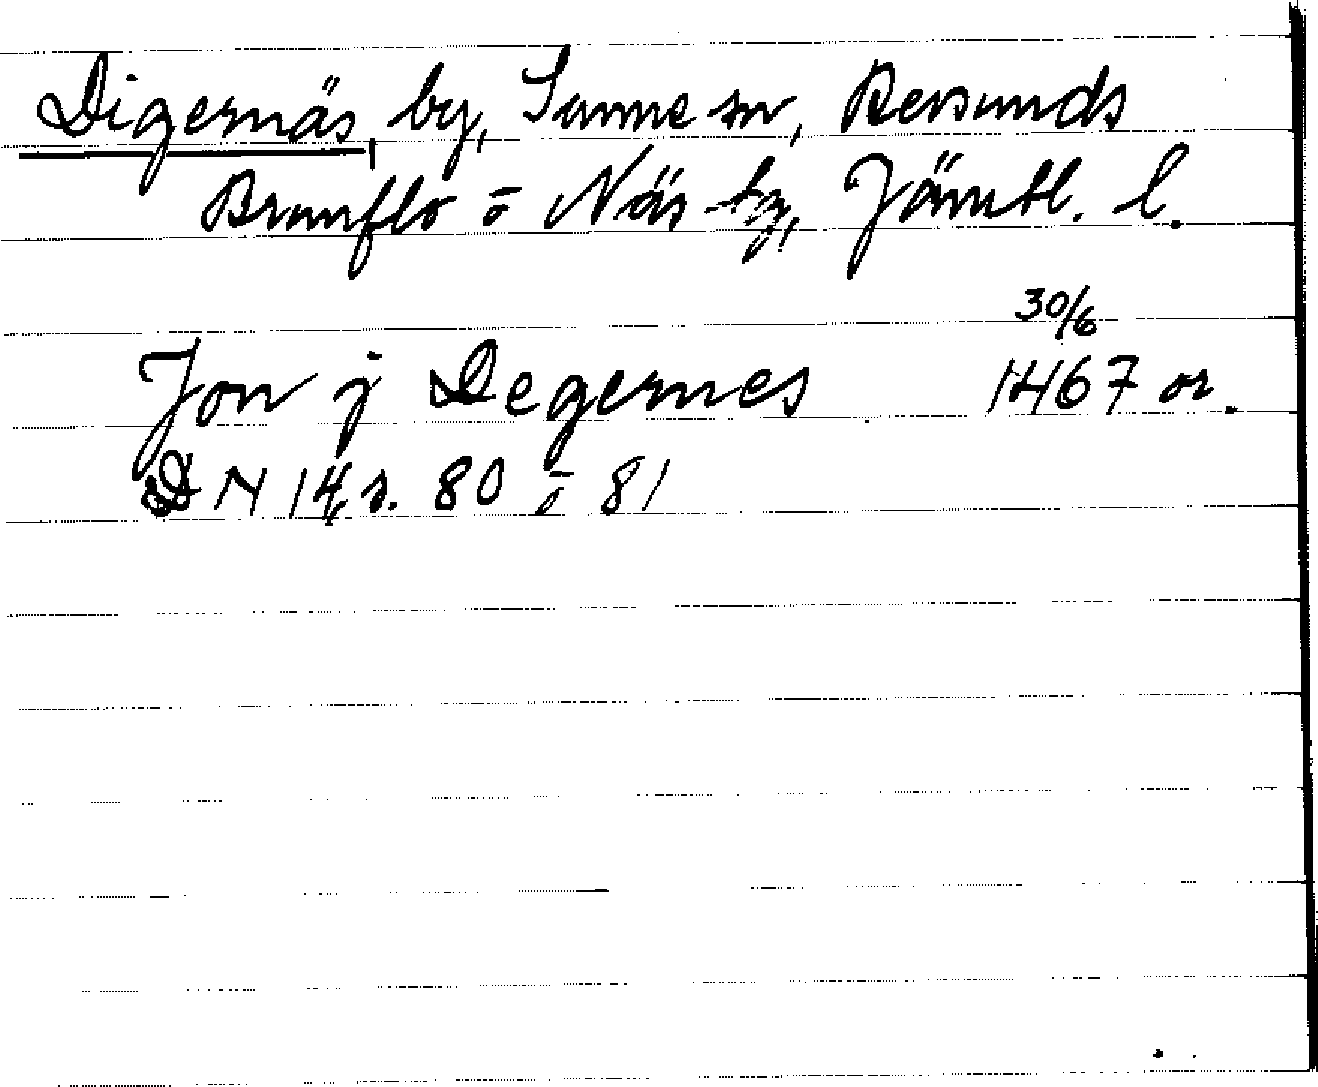 Digernäs, by, Sunne sn, Revsunds
Brunflo o Näs tg, Jämtl. l.
30/6
Jon j Degernes 1467 or.
DN 14, s. 80 o 81